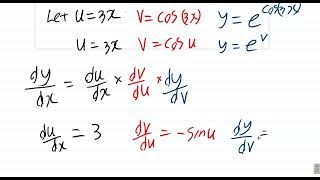 Let u = 3x   v = cos(3x)   y = e^cos(3x)
u = 3x   v = cos u   y = e^v
dy/dx = du/dx × dv/du × dy/dv
du/dx = 3   dv/du = -sin u   dy/dv =